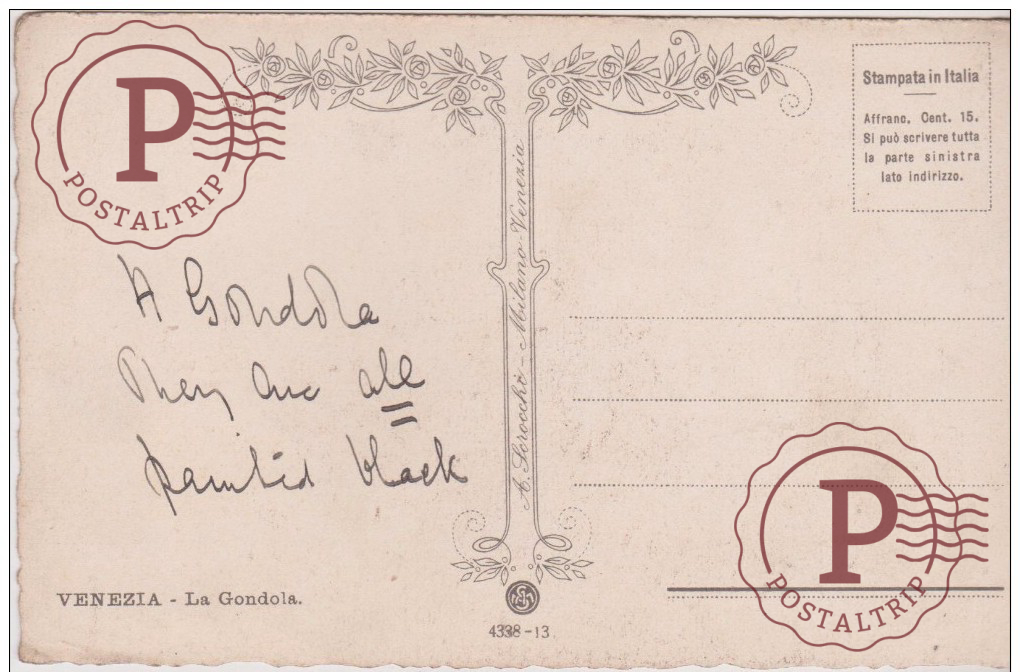 P
POSTALTRIP
Stampata in Italia
Affranc. Cent. 15.
Si può scrivere tutta
la parte sinistra
lato indirizzo.
A Gondola
They are all
painted black
A. Scrocchi - Milano-Venezia
VENEZIA - La Gondola.
4338-13
P
POSTALTRIP